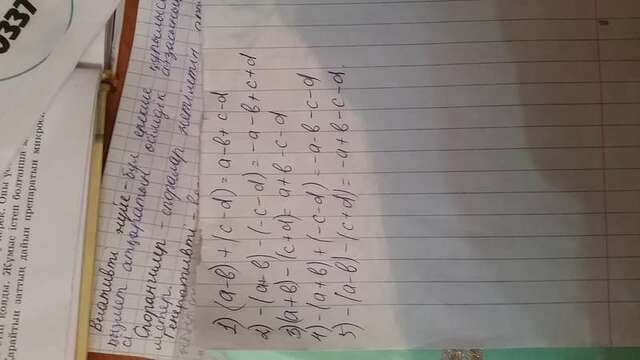 қояды. Жұмыс істеп болғанша
қарайтын заттың дайын препаратын микрос
0337
Вегативті жүйе - бұл ерекше құрылысы
қызмет атқаратын өсімдік
Спорангилер - споралар жетілетін
мүшелер.
Генеративті -
1) (a-b) + (c-d) = a-b+c-d
2) -(a+b) - (-c-d) = -a-b+c+d
3) (a+b) - (c+d) = a+b-c-d
4) -(a+b) + (-c-d) = -a-b-c-d
5) -(a-b) - (c+d) = -a+b-c-d.